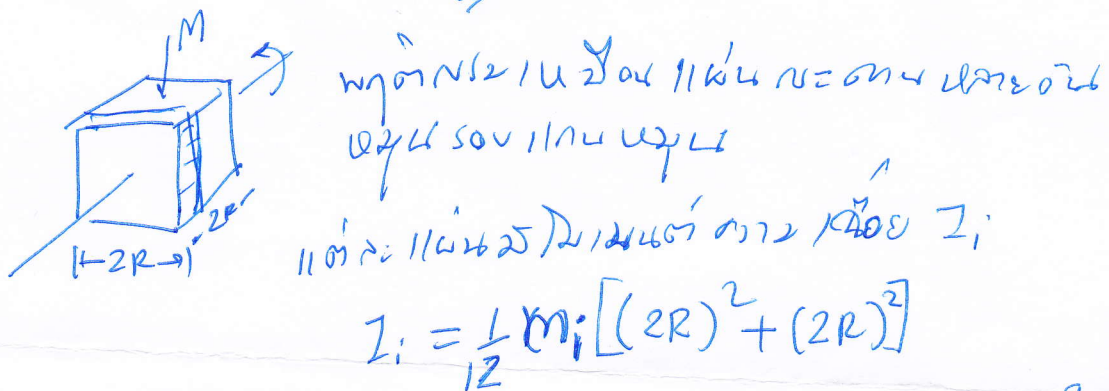 M
พฤติกรรมเหมือนแผ่นกระดานหลายอัน
หมุนรอบแกนหมุน
2R
|←2R→|
แต่ละแผ่นมีโมเมนต์ความเฉื่อย I_i
I_i = 1/12 m_i [(2R)² + (2R)²]